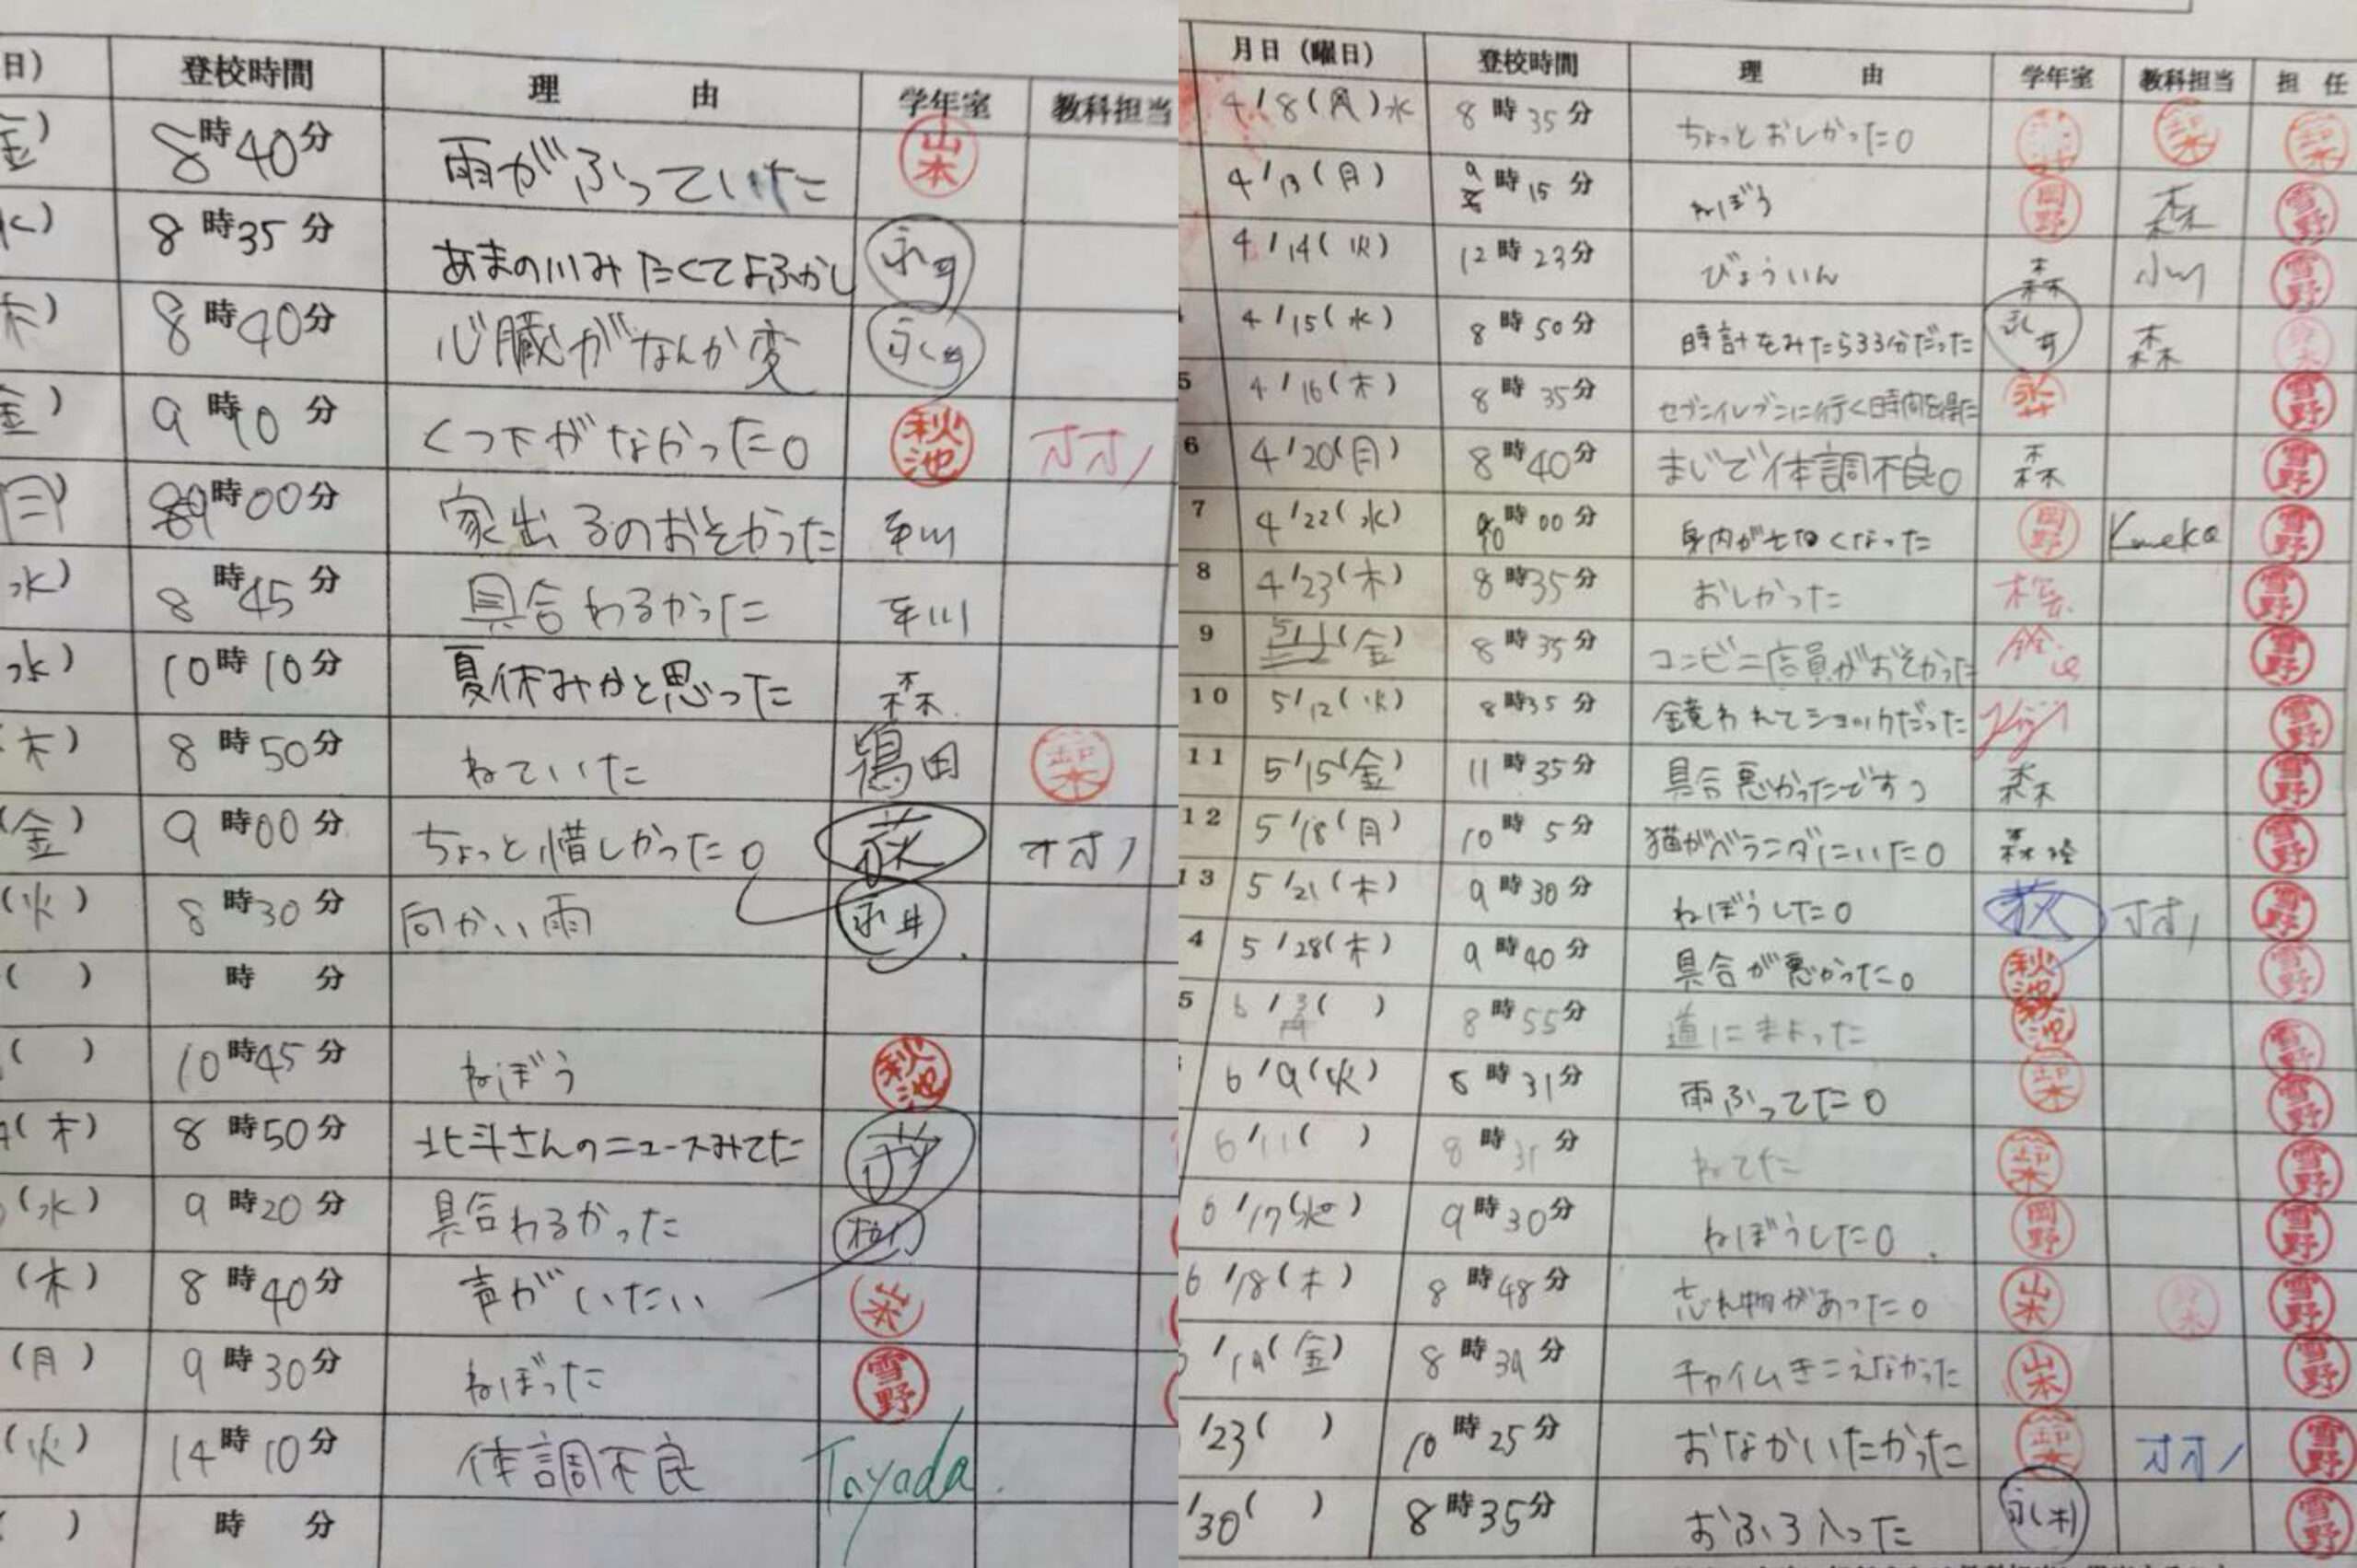 日) 登校時間 理 由 学年室 教科担当
金) 8時40分 雨がふっていた 山本
水) 8時35分 あまの川みたくてよふかし 永井
木) 8時40分 心臓がなんか変 永井
金) 9時10分 くつ下がなかった。 秋池 オオノ
月) 9時00分 家出るのおそかった 平川
水) 8時45分 具合わるかった 平川
水) 10時10分 夏休みかと思った 森
木) 8時50分 ねていた 鴇田
(金) 9時00分 ちょっと惜しかった。 荻 オオノ
(火) 8時30分 向かい雨 永井
( ) 時 分
( ) 10時45分 ねぼう 秋池
(木) 8時50分 北斗さんのニュースみてた
(水) 9時20分 具合わるかった
(木) 8時40分 声がいたい
(月) 9時30分 ねぼった 雪野
(火) 14時10分 体調不良 Tayada
( ) 時 分
月日(曜日) 登校時間 理 由 学年室 教科担当 担 任
4/8(月)水 8時35分 ちょっとおしかった。
4/13(月) 9時15分 ねぼう 岡野 森 雪野
4/14(火) 12時23分 びょういん 森 小川 雪野
4/15(水) 8時50分 時計をみたら33分だった 永井 森
5 4/16(木) 8時35分 セブンイレブンに行く時間を得た 永井 雪野
6 4/20(月) 8時40分 まじで体調不良。 森 雪野
7 4/22(水) 10時00分 身内が亡くなった 岡野 Kaneko 雪野
8 4/23(木) 8時35分 おしかった 雪野
9 5/1(金) 8時35分 コンビニ店員がおそかった 雪野
10 5/12(火) 8時35分 鏡われてショックだった 雪野
11 5/15(金) 11時35分 具合悪かったです 森 雪野
12 5/18(月) 10時5分 猫がベランダにいた。 雪野
13 5/21(木) 9時30分 ねぼうした。 荻 オオノ 雪野
4 5/28(木) 9時40分 具合が悪かった。 秋池 雪野
5 6/3( ) 8時55分 道にまよった 秋池 雪野
6/9(火) 8時31分 雨ふってた。 雪野
6/11( ) 8時31分 ねてた 雪野
6/17(水) 9時30分 ねぼうした。 岡野 雪野
6/18(木) 8時48分 忘れ物があった。 山本 雪野
/19(金) 8時39分 チャイムきこえなかった 山本 雪野
/23( ) 10時25分 おなかいたかった オオノ 雪野
/30( ) 8時35分 おふろ入った 雪野